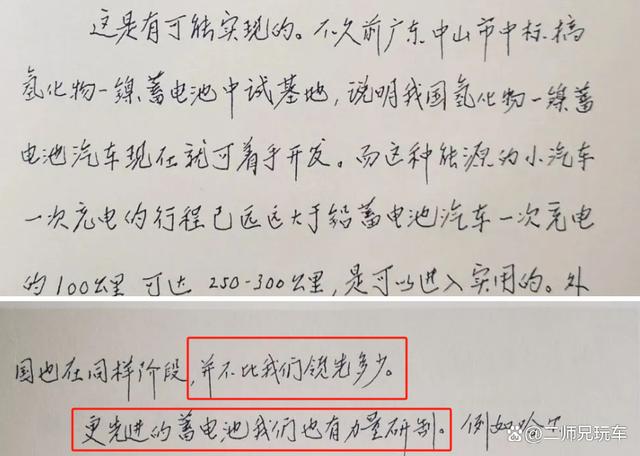 这是有可能实现的。不久前广东中山市中标搞
氢化物一镍蓄电池中试基地，说明我国氢化物一镍蓄
电池汽车现在就可着手开发。而这种能源的小汽车
一次充电的行程已远远大于铅蓄电池汽车一次充电
的100公里 可达 250-300公里，是可以进入实用的。外
国也在同样阶段，并不比我们领先多少。
更先进的蓄电池我们也有力量研制。例如哈工
@二师兄玩车